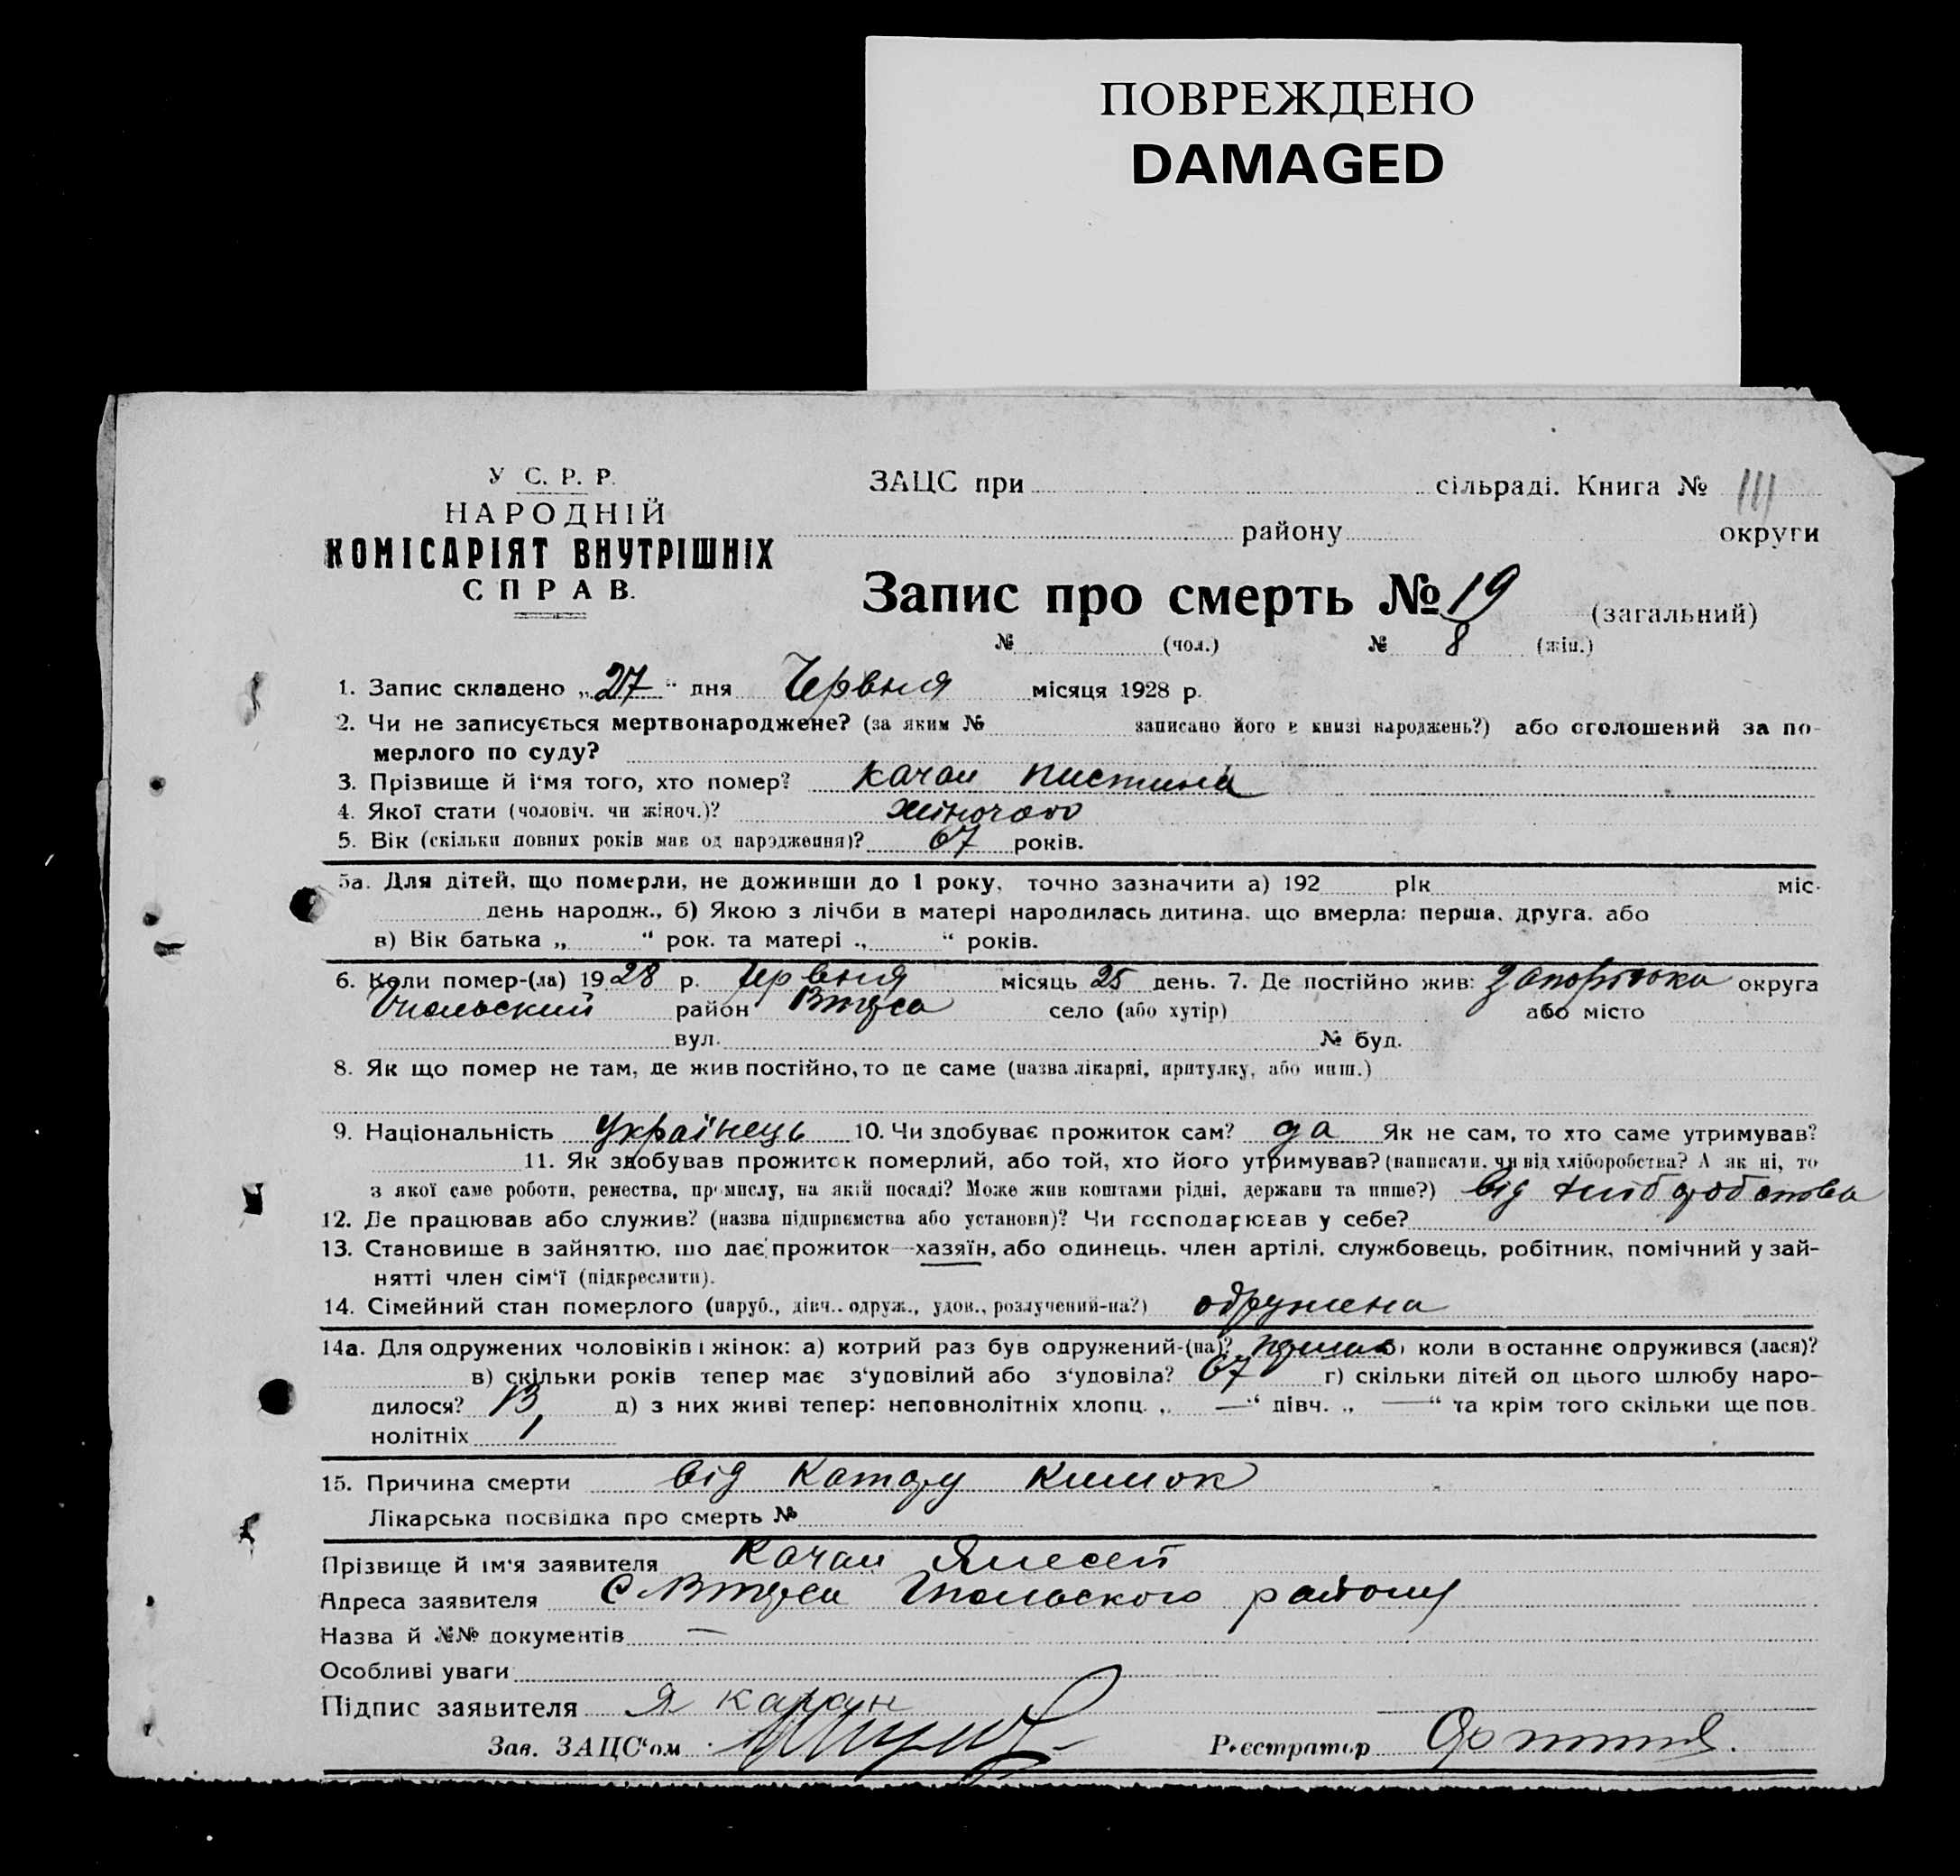 ПОВРЕЖДЕНО
DAMAGED
У С. Р. Р.
НАРОДНІЙ
КОМІСАРІЯТ ВНУТРІШНІХ
СПРАВ.
ЗАЦС при сільраді. Книга №
району округи
Запис про смерть № 19 (загальний)
№ (чол.) № 8 (жін.)
1. Запис складено „27“ дня Червня місяця 1928 р.
2. Чи не записується мертвонароджене? (за яким № записано його в книзі народжень?) або оголошений за по-
мерлого по суду?
3. Прізвище й і'мя того, хто помер? Качан Пистина
4. Якої стати (чоловіч. чи жіноч.)? жіночого
5. Вік (скільки повних років мав од народження)? 67 років.
5а. Для дітей, що померли, не доживши до 1 року, точно зазначити а) 192 рік міс.
день народж., б) Якою з лічби в матері народилась дитина, що вмерла: перша, друга, або
в) Вік батька „ “ рок. та матері „ “ років.
6. Коли помер-(ла) 1928 р. Червня місяць 25 день. 7. Де постійно жив: Запорізька округа
район село (або хутір) або місто
вул. № буд.
8. Як що помер не там, де жив постійно, то де саме (назва лікарні, притулку, або инш.)
9. Національність Українець 10. Чи здобуває прожиток сам? да Як не сам, то хто саме утримував?
11. Як здобував прожиток померлий, або той, хто його утримував? (написати, чи від хліборобства? А як ні, то
з якої саме роботи, ремества, промислу, на якій посаді? Може жив коштами рідні, держави та инше?) від
12. Де працював або служив? (назва підприємства або установи)? Чи господарював у себе?
13. Становище в зайняттю, що дає прожиток—хазяїн, або одинець, член артілі, службовець, робітник, помічний у зай-
нятті член сім'ї (підкреслити).
14. Сімейний стан померлого (паруб., дівч., одруж., удов., розлучений-на?) одружена
14а. Для одружених чоловіків і жінок: а) котрий раз був одружений-(на)? б) коли востаннє одружився (лася)?
в) скільки років тепер має з'удовілий або з'удовіла? 67 г) скільки дітей од цього шлюбу наро-
дилося? 13 д) з них живі тепер: неповнолітніх хлопц. „—“ дівч. „—“ та крім того скільки ще пов-
нолітніх 1
15. Причина смерти від Катару Кишок
Лікарська посвідка про смерть №
Прізвище й ім'я заявителя Качан
Адреса заявителя району
Назва й №№ документів —
Особливі уваги:
Підпис заявителя
Зав. ЗАЦС'ом
Реєстратор